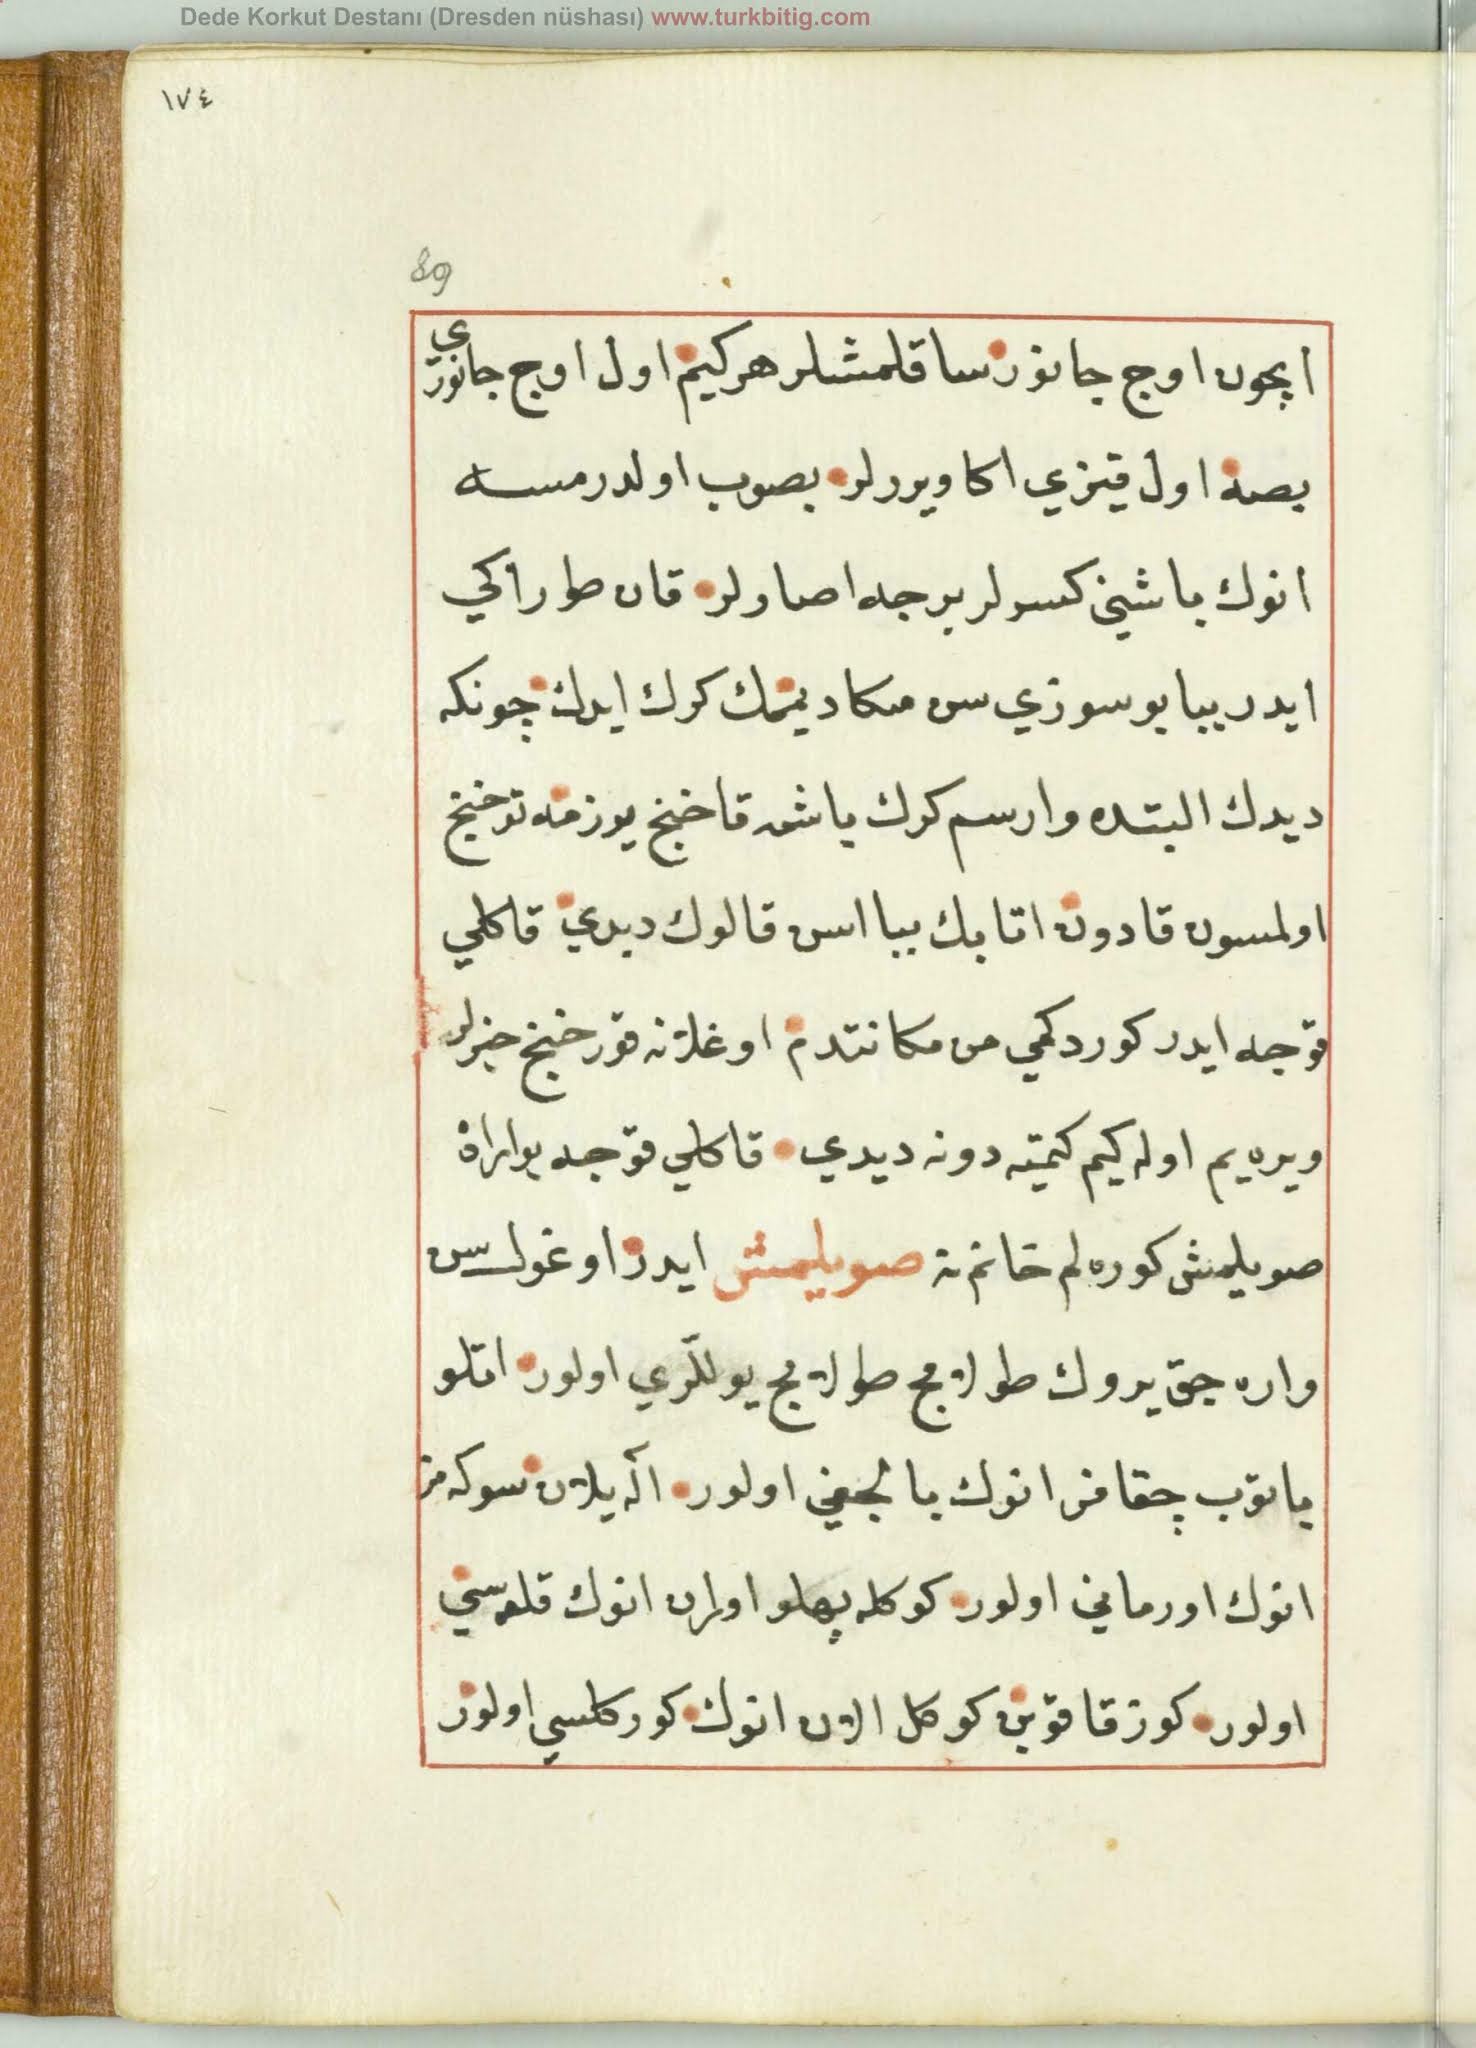 Dede Korkut Destanı (Dresden nüshası) www.turkbitig.com
١٧٤
89
ايچون اوج جانور ساقلمشلر هر كيم اول اوج جانوري
بصه اول قيزي اكا ويررلر بصوب اولدرمسه
انوك باشيني كسرلر برجه اصارلر قان طورالي
ايدر ببا بو سوزي سن مكا ديممك كرك ايدك چونكه
ديدك البتده وارسم كرك باشمه قاخنج يوزمه توخنج
اولمسون قادون انا بك ببا اسن قالوك ديدي قاكلي
قوجه ايدر كوردكمي من مكا نتدم اوغلانه قورخنج خبرلر
ويره يم اوله كيم كيتميه دونه ديدي قاكلي قوجه بوراده
صويلمش كوره لم خانم نه صويلمش ايدر اوغول سن
واره جق يروك طولامج طولامج يوللري اولور اتلو
باتوب چقامز انوك بالچغي اولور اله ييلان سوكه مز
انوك اورماني اولور كوكله پهلو اوران انوك قلعه سي
اولور كوز قاقوبن كوكل الان انوك كوركلسي اولور